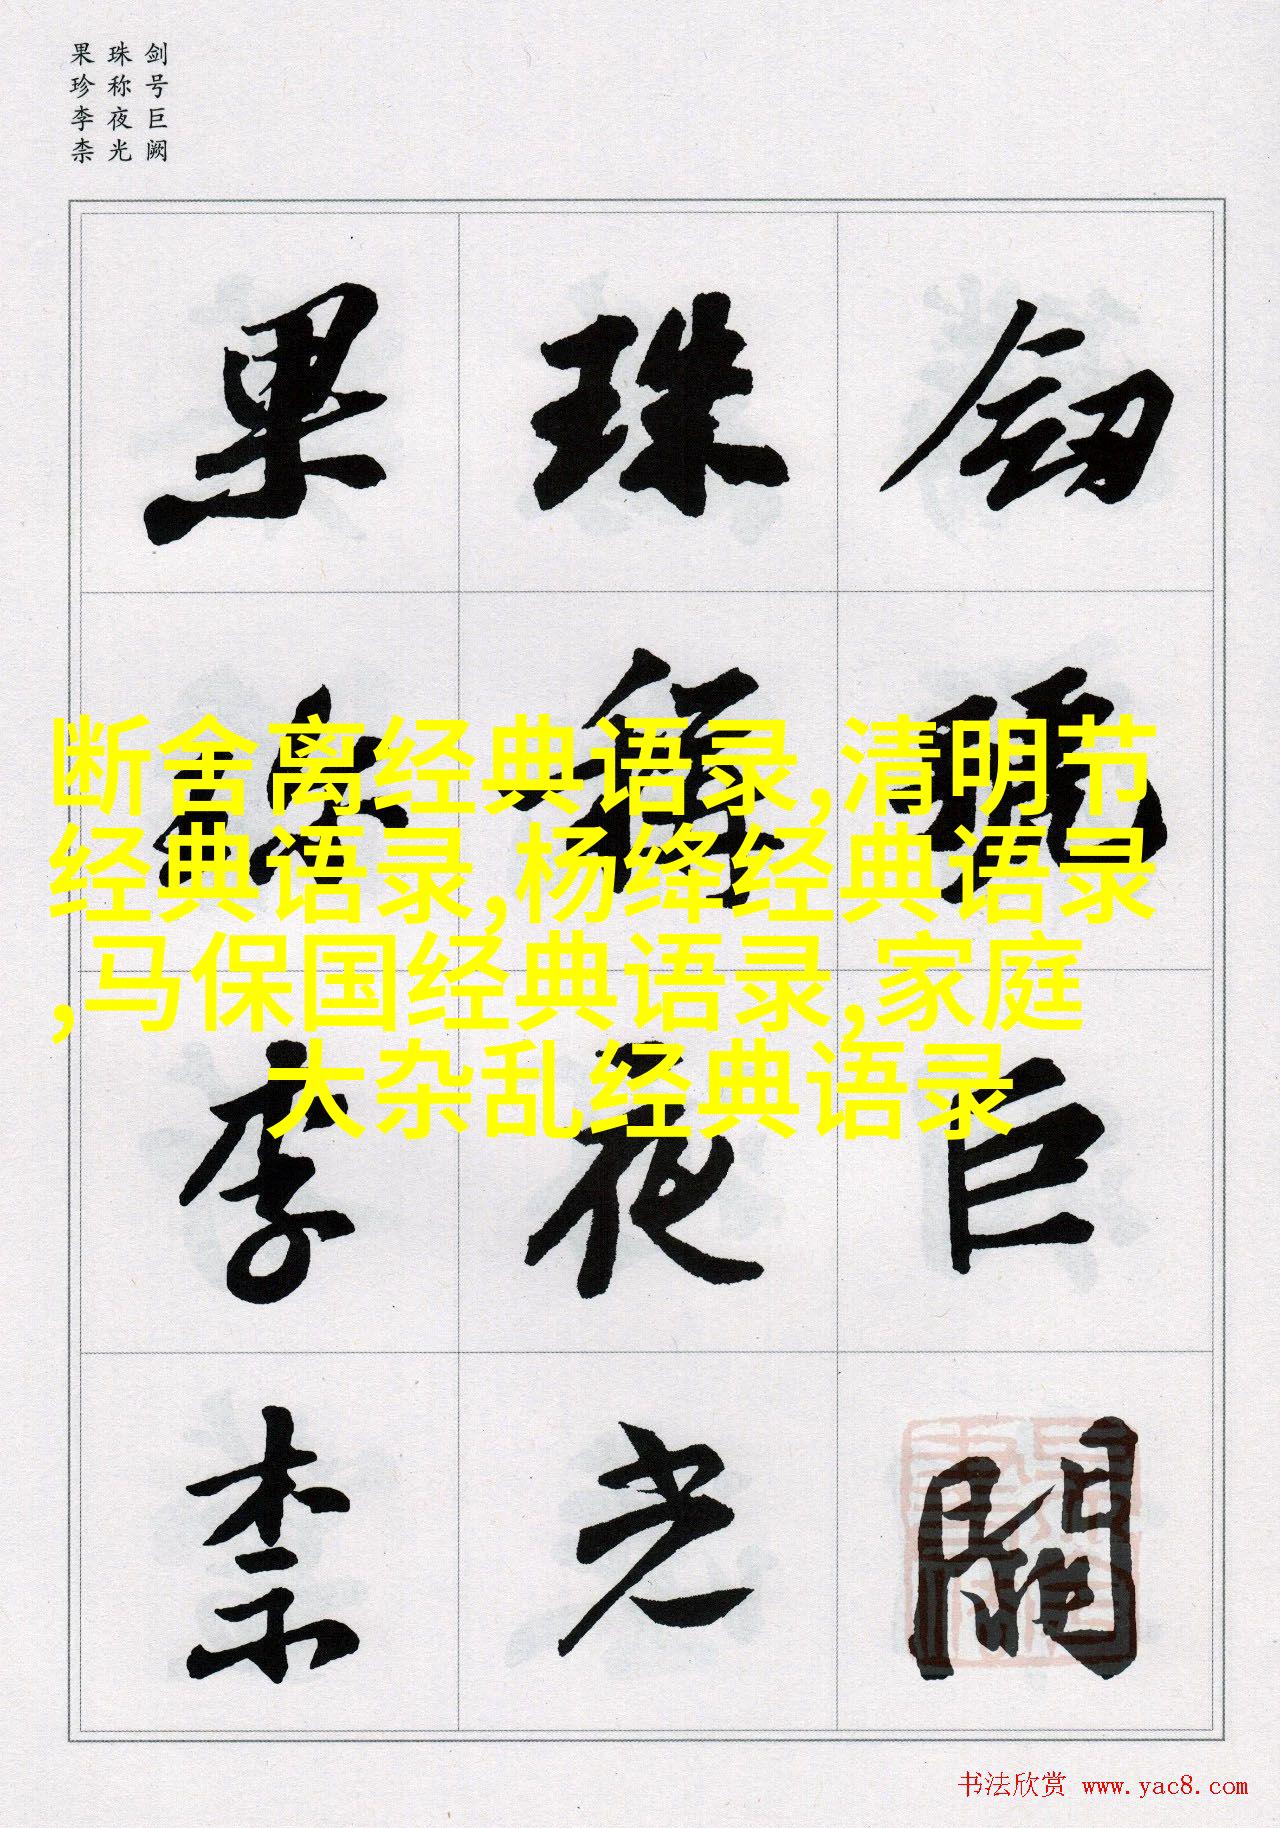 剑号巨阙
珠称夜光
果珍李柰
剑号巨阙
珠称夜光
果珍李柰
断舍离经典语录,清明节
经典语录,杨绛经典语录
,马保国经典语录,家庭
大杂乱经典语录
书法欣赏 www.yac8.com